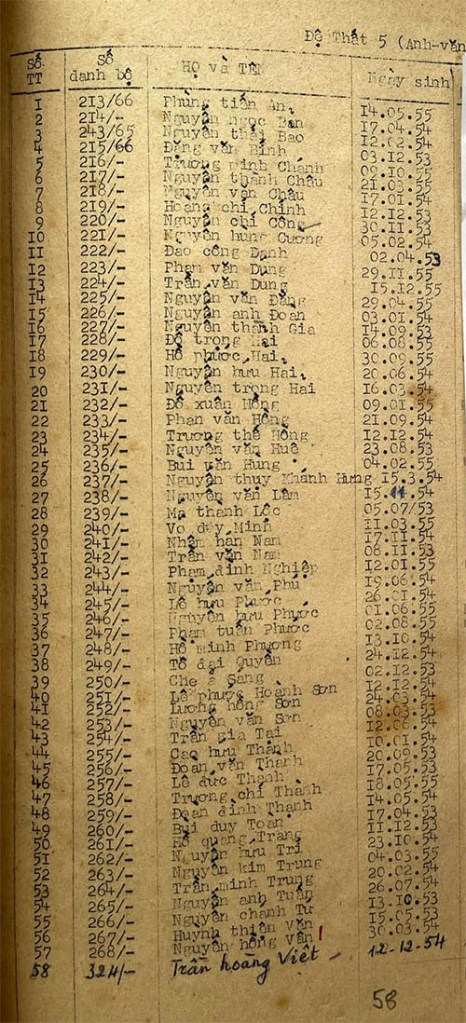 Đệ Thất 5 (Anh-văn
Số TT Số danh bộ HỌ và TÊN Ngày sinh
1 213/66 Phùng tiến An 14.05.55
2 214/- Nguyễn ngọc Ban 17.04.54
3 243/65 Nguyễn thái Bao 12.02.54
4 215/66 Đặng văn Bình 03.12.53
5 216/- Trương minh Chánh 09.10.55
6 217/- Nguyễn thành Châu 21.03.55
7 218/- Nguyễn văn Châu 17.01.54
8 219/- Hoàng chí Chinh 12.12.53
9 220/- Nguyễn chí Công 30.11.53
10 221/- Nguyễn hung Cương 05.02.54
11 222/- Đao công Danh 02.04.53
12 223/- Phạm văn Dung 29.11.55
13 224/- Trần văn Dung 15.12.55
14 225/- Nguyễn văn Đăng 29.04.55
15 226/- Nguyễn anh Đoan 03.01.54
16 227/- Nguyễn thành Gia 14.09.53
17 228/- Đỗ trọng Hai 06.08.55
18 229/- Hồ phước Hai 30.09.55
19 230/- Nguyễn hưu Hai 20.06.54
20 231/- Nguyễn trọng Hai 16.03.54
21 232/- Đỗ xuân Hồng 09.01.55
22 233/- Phan văn Hồng 21.09.54
23 234/- Trương thế Hồng 12.12.54
24 235/- Nguyễn văn Huê 23.08.53
25 236/- Bui văn Hung 04.02.55
26 237/- Nguyễn thuy Khánh Hưng 15.3.54
27 238/- Nguyễn văn Lâm 15.11.54
28 239/- Mạ thanh Lộc 05.07/53
29 240/- Vo duy Minh 11.03.55
30 241/- Nhâm han Nam 17.11.54
31 242/- Trần văn Nam 06.11.53
32 243/- Phạm đình Nghiệp 12.01.55
33 244/- Nguyễn văn Phú 19.06.54
34 245/- Lê hưu Phước 26.01.54
35 246/- Nguyễn hưu Phước 01.06.55
36 247/- Phạm tuấn Phước 02.08.55
37 248/- Hồ minh Phượng 13.10.54
38 249/- Tô đại Quyền 24.12.54
39 250/- Che a Sang 02.12.53
40 251/- Lê phước Hoành Sơn 12.12.54
41 222/- Lương hồng Sơn 24.03.54
42 253/- Nguyễn văn Sơn 08.03.53
43 254/- Trần gia Tai 12.06.54
44 255/- Cao hưu Thành 10.01.54
45 256/- Đoan văn Thanh 20.09.53
46 257/- Lê đức Thanh 17.05.53
47 258/- Trương chí Thành 18.05.55
48 259/- Đoan đình Thạnh 14.05.54
49 260/- Bùi duy Toan 17.04.53
50 261/- Hồ quang Trang 11.12.53
51 262/- Nguyễn hưu Tri 23.10.54
52 263/- Nguyễn kim Trung 04.03.55
53 264/- Trần minh Trung 20.02.54
54 265/- Nguyễn anh Tuấn 26.07.54
55 266/- Nguyễn chanh Tư 13.10.53
56 267/- Huỳnh thiện Văn 15.05.53
57 268/- Nguyễn hồng Vân 30.03.54
58 324/- Trần hoàng Việt - 12-12-54
58